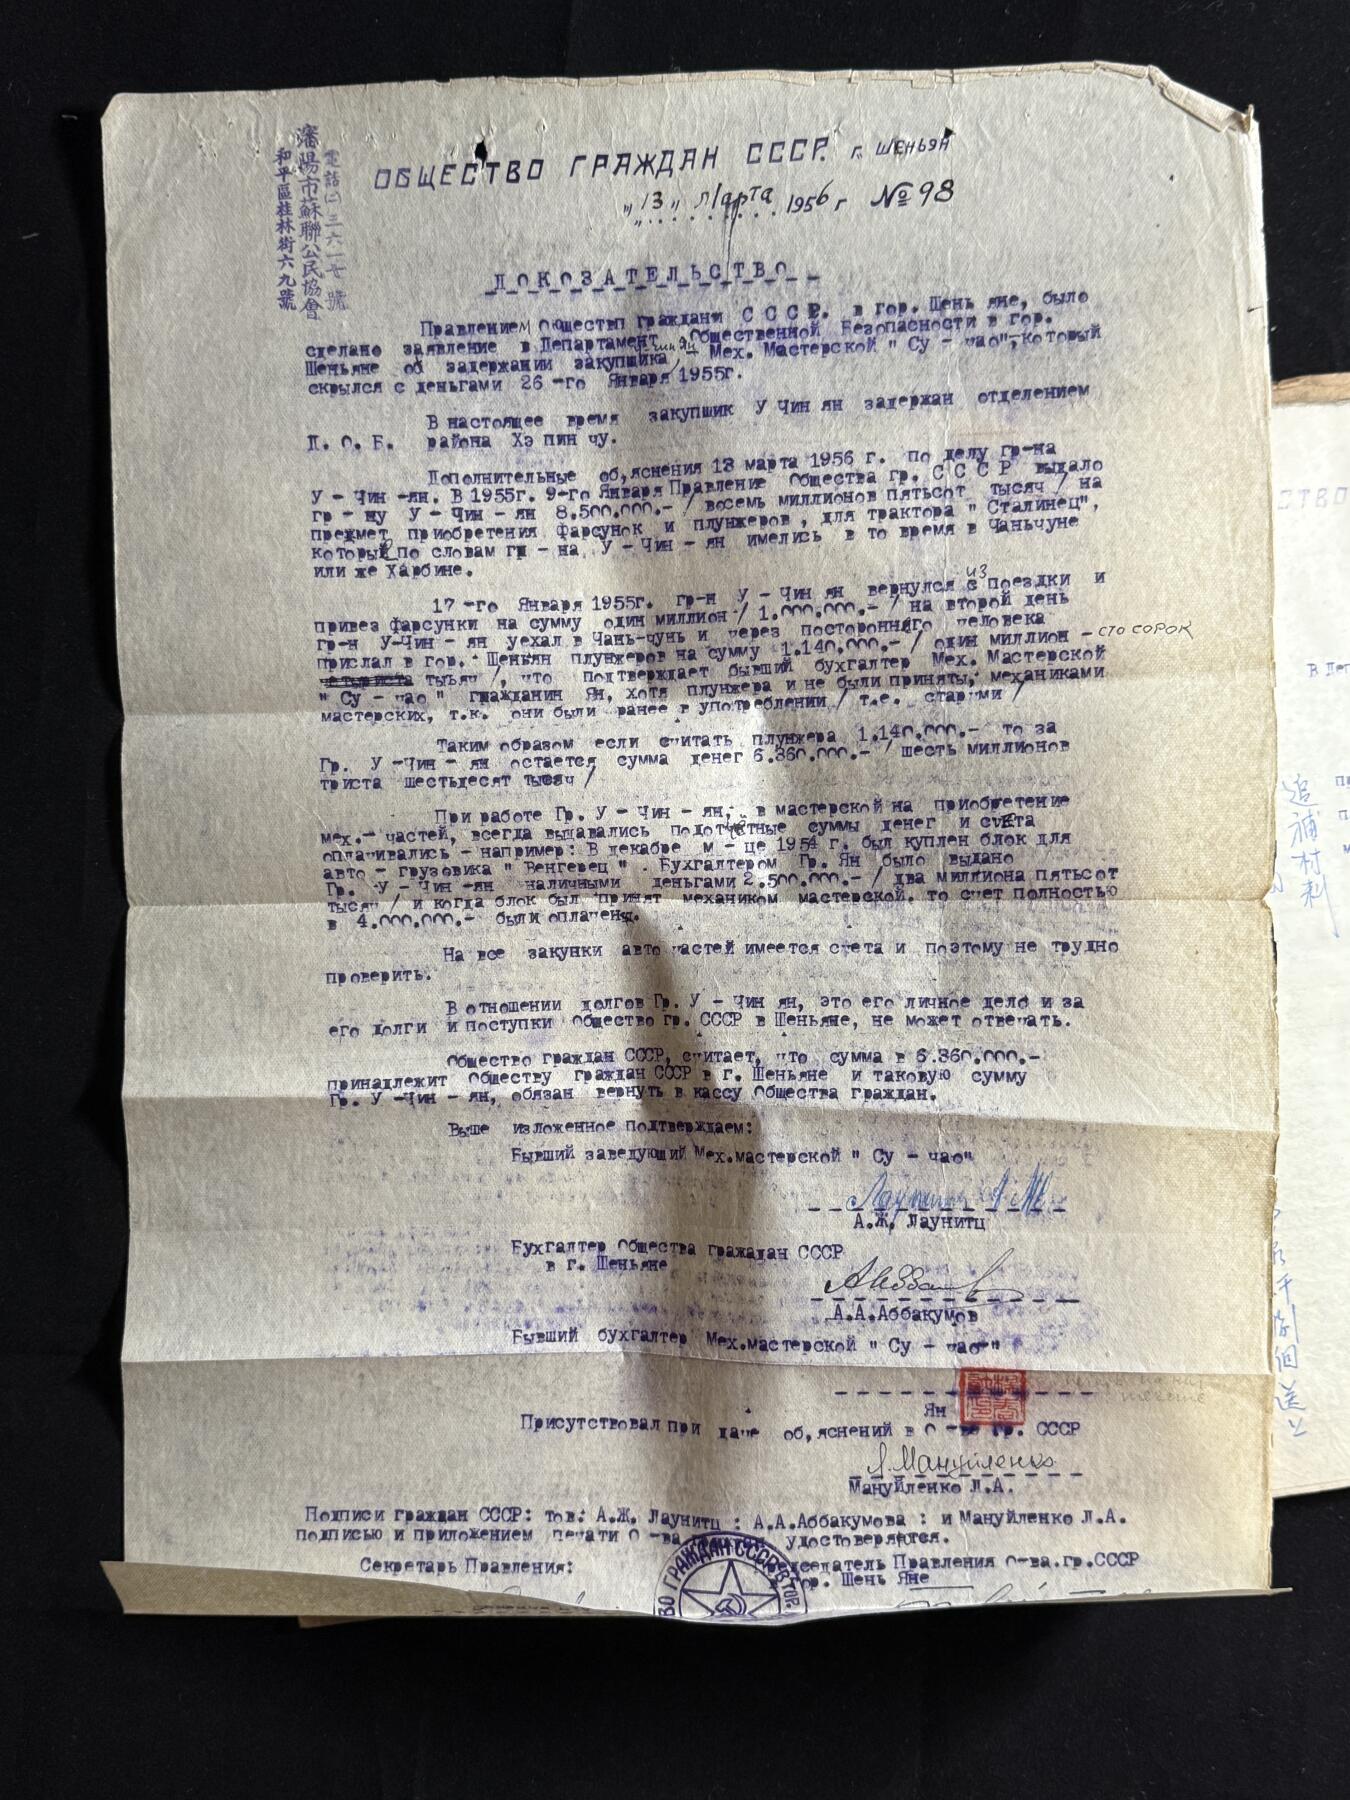 電話(二)三六一七號
瀋陽市蘇聯公民協會
和平區桂林街六九號
ОБЩЕСТВО ГРАЖДАН СССР. г. ШЕНЬЯН
„13„ Марта 1956 г № 98
ДОКОЗАТЕЛЬСТВО
Правлением Общества граждани С С С Р. в гор. Шень яне, было
сделано заявление в Департамент Общественной Безопасности в гор.
Шеньяне об задержании закупщика Мех. Мастерской " Су - чао", который
скрылся с деньгами 26 -го Января 1955г.
В настоящее время закупшик У Чин ян задержан отделением
Д. О. Б. района Хэ пин чу.
Дополнительные об,яснения 13 марта 1956 г. по делу гр-на
У - Чин -ян. В 1955г. 9-го Января Правление Общества гр. С С С Р выдало
гр - ну У - Чин - ян 8.500.000.- / восемь миллионов пятьсот тысяч / на
предмет приобретения Фарсунок и плунжеров , для трактора " Сталинец",
которые по словам гр - на У - Чин - ян имелись в то время в Чаньчуне
или же Харбине.
17 -го Января 1955г. гр-н У - Чин ян вернулся из поездки и
привез фарсунки на сумму один миллион / 1.000.000.- / на второй день
гр-н У-Чин - ян уехал в Чань-чунь и через постороннего человека
прислал в гор. Шеньян плунжеров на сумму 1.140.000.- / один миллион - сто сорок
четыриста тысяч /, что подтверждает бывший бухгалтер Мех. Мастерской
" Су - чао " гражданин Ян, хотя плунжера и не были приняты, механиками
мастерских, т.к. они были ранее в употреблении / т.е. старыми /
Таким образом если считать плунжера 1.140.000.- то за
Гр. У -Чин - ян остается сумма денег 6.360.000.- / шесть миллионов
триста шестьдесят тысяч /
При работе Гр. У - Чин - ян, в мастерской на приобретение
мех.- частей, всегда выдавались подотчетные суммы денег и счета
оплачивались - например: В декабре м - це 1954 г. был куплен блок для
авто - грузовика " Венгерец " . Бухгалтером Гр. Ян было выдано
Гр. У - Чин -ян наличными деньгами 2.500.000.- / два миллиона пятьсот
тысяч / и когда блок был принят механиком мастерской. то счет полностью
в 4.000.000.- были оплачены.
На все закупки авто частей имеется счета и поэтому не трудно
проверить.
В отношении долгов Гр. У - Чин ян, это его личное дело и за
его долги и поступки Общество гр. СССР в Шеньяне, не может отвечать.
Общество граждан СССР, считает, что сумма в 6.360.000.-
принадлежит Обществу граждан СССР в г. Шеньяне и таковую сумму
Гр. У -Чин - ян, обязан вернуть в кассу Общества граждан.
Выше изложенное подтверждаем:
Бывший заведующий Мех.мастерской " Су - чао"
А.Ж. Лаунитц
Бухгалтер Общества гражадан СССР
в г. Шеньяне
А.А.Аббакумов
Бывший бухгалтер Мех.мастерской " Су - чао"
Ян
Присутствовал при даче об,яснений в О -ве гр. СССР
Л.Мануйленко
Мануйленко Л.А.
Подписи граждан СССР: тов: А.Ж. Лаунитц : А.А.Аббакумова : и Мануйленко Л.А.
подписью и приложением печати О -ва удостоверяется.
Секретарь Правления: Председатель Правления О-ва.гр.СССР
в гор. Шень Яне
ГРАЖДАН СССР В ГОР.
СТВО
В Деп
追補材料